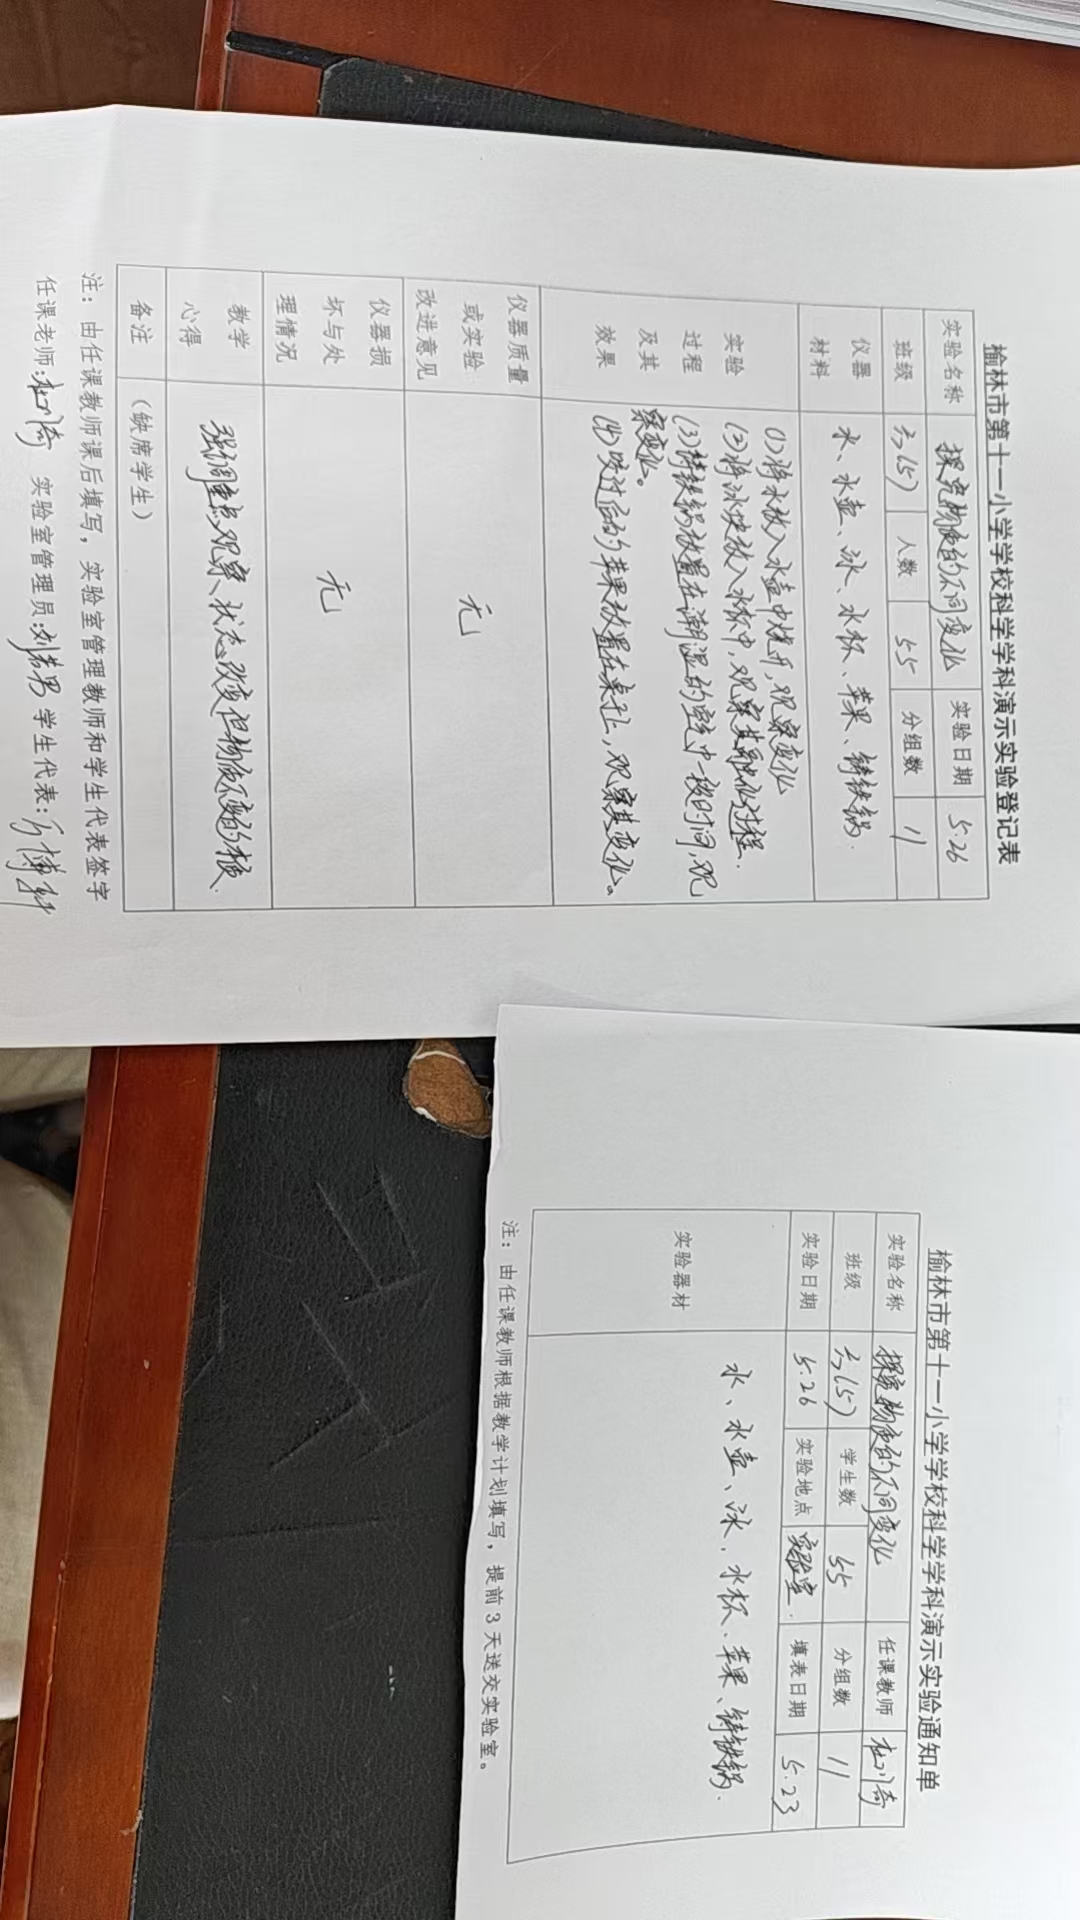 榆林市第十一小学学校科学学科演示实验登记表
实验名称 探究物质的不同变化 实验日期 5.26
班级 六(5) 人数 55 分组数 11
仪器材料 水、水壶、冰、水杯、苹果、铸铁锅.
实验过程及其效果
(1)将水放入水壶中烧开,观察变化
(2)将冰块放入水杯中,观察其融化过程.
(3)铸铁锅放置在潮湿的空气中一段时间,观
察变化。
(4)咬过后的苹果放置在桌子上,观察其变化。
仪器质量或实验改进意见 无
仪器损坏与处理情况 无
教学心得 强调重点观察、状态改变但物质不变的本质.
备注 (缺席学生)
注:由任课教师课后填写,实验室管理教师和学生代表签字
任课老师: 实验室管理员:刘若男 学生代表:
榆林市第十一小学学校科学学科演示实验通知单
实验名称 探究物质的不同变化 任课教师
班级 六(5) 学生数 55 分组数 11
实验日期 5.26 实验地点 实验室. 填表日期 5.23
实验器材 水、水壶、冰、水杯、苹果、铸铁锅.
注:由任课教师根据教学计划填写,提前3天送交实验室。